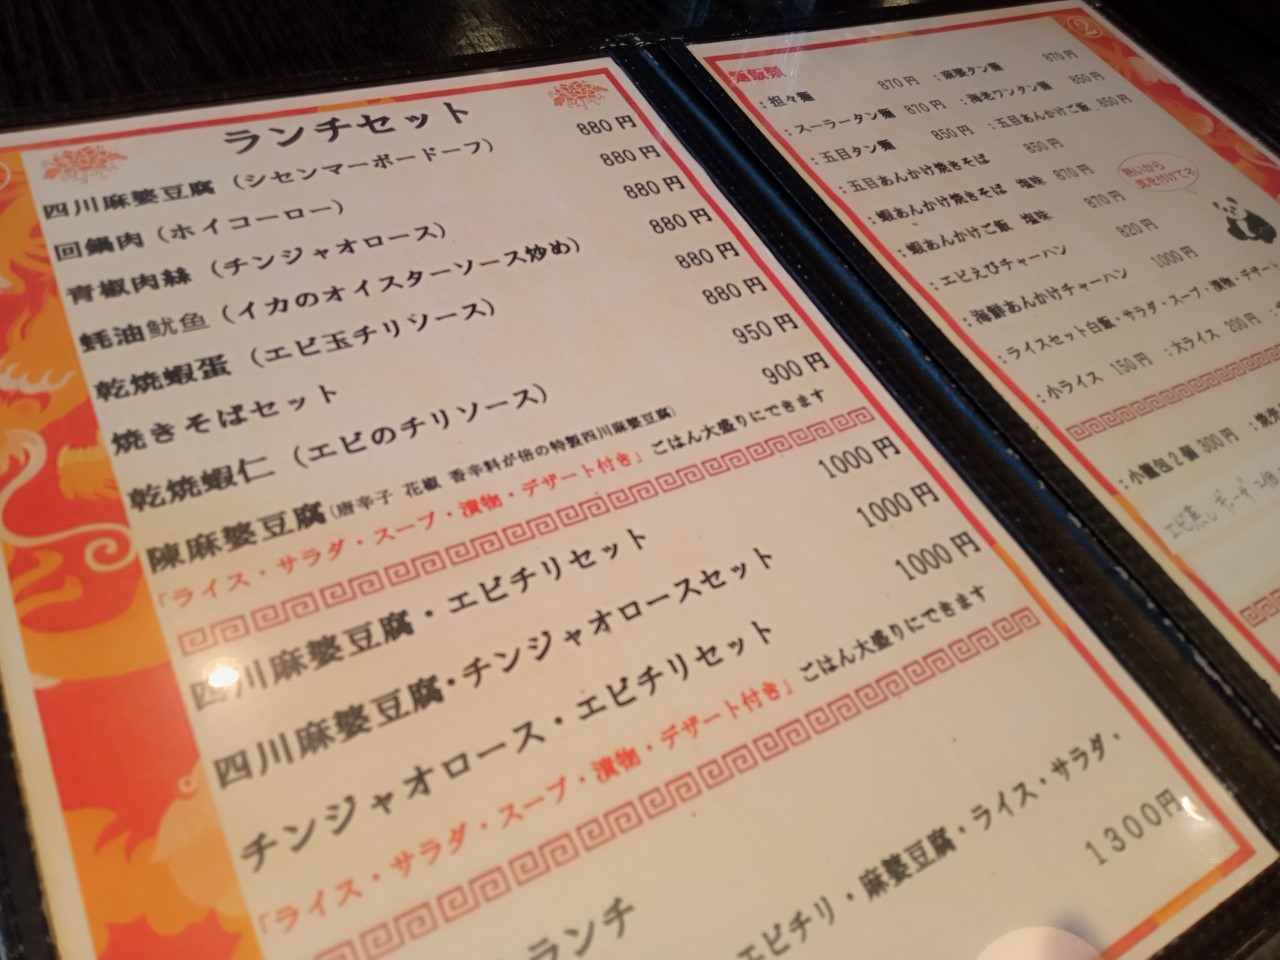 ランチセット
四川麻婆豆腐（シセンマーボードーフ） 880円
回鍋肉（ホイコーロー） 880円
青椒肉絲（チンジャオロース） 880円
蚝油鱿鱼（イカのオイスターソース炒め） 880円
乾焼蝦蛋（エビ玉チリソース） 880円
焼きそばセット 880円
乾焼蝦仁（エビのチリソース） 950円
陳麻婆豆腐（唐辛子 花椒 香辛料が倍の特製四川麻婆豆腐） 900円
「ライス・サラダ・スープ・漬物・デザート付き」ごはん大盛りにできます
四川麻婆豆腐・エビチリセット 1000円
四川麻婆豆腐・チンジャオロースセット 1000円
チンジャオロース・エビチリセット 1000円
「ライス・サラダ・スープ・漬物・デザート付き」ごはん大盛りにできます
ランチ
エビチリ・麻婆豆腐・ライス・サラダ・
1300円
②
麺飯類
：担々麺 870円 ：麻婆タン麺 870円
：スーラータン麺 870円 ：海老ワンタン麺 850円
：五目タン麺 850円 ：五目あんかけご飯 850円
：五目あんかけ焼きそば 850円
：蝦あんかけ焼きそば 塩味 870円
：蝦あんかけご飯 塩味 870円
：エビえびチャーハン 820円
：海鮮あんかけチャーハン 1000円
熱いから
気を付けてネ
：ライスセット白飯・サラダ・スープ・漬物・デザート
：小ライス 150円 ：大ライス 200円
：小籠包2個 300円